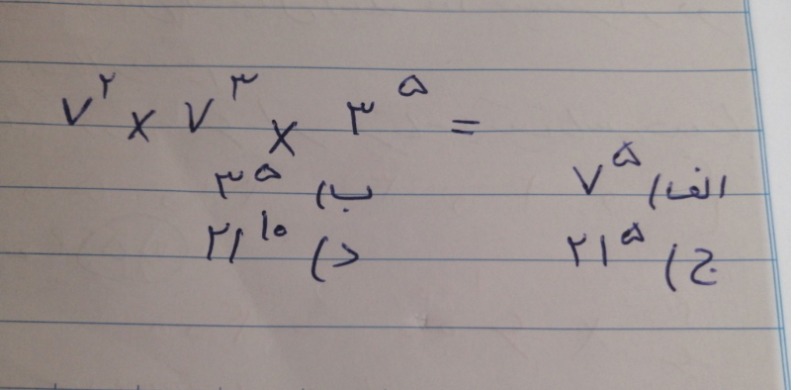 ۷^۲ × ۷^۳ × ۳^۵ =
الف) ۷^۵ ب) ۳^۵
ج) ۲۱^۵ د) ۲۱^۱۰